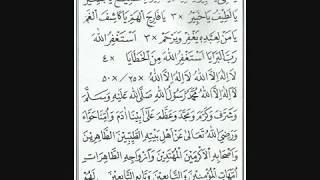 يَا لَطِيْفُ يَا خَبِيْرُ ×٣ يَا فَارِجَ الْهَمِّ يَا كَاشِفَ الْغَمِّ
يَا مَنْ لِعَبْدِهِ يَغْفِرُ وَيَرْحَمُ ×٣ اَسْتَغْفِرُ اللهَ
رَبَّ الْبَرَايَا اَسْتَغْفِرُ اللهَ مِنَ الْخَطَايَا ×٤
لَا اِلٰهَ اِلَّا اللهُ لَا اِلٰهَ اِلَّا اللهُ ×٢٥/×٥٠
لَا اِلٰهَ اِلَّا اللهُ مُحَمَّدٌ رَسُوْلُ اللهِ صَلَّى اللهُ عَلَيْهِ وَسَلَّمَ
وَشَرَّفَ وَكَرَّمَ وَمَجَّدَ وَعَظَّمَ عَلَى اَبِيْنَا اٰدَمَ وَاُمِّنَا حَوَّاءَ
وَرَضِيَ اللهُ تَعَالَى عَنْ اَهْلِ بَيْتِهِ الطَّيِّبِيْنَ الطَّاهِرِيْنَ
وَاَصْحَابِهِ الْاَكْرَمِيْنَ الْمُهْتَدِيْنَ وَاَزْوَاجِهِ الطَّاهِرَاتِ
اُمَّهَاتِ الْمُؤْمِنِيْنَ وَالتَّابِعِيْنَ وَتَابِعِ التَّابِعِيْنَ لَهُمْ